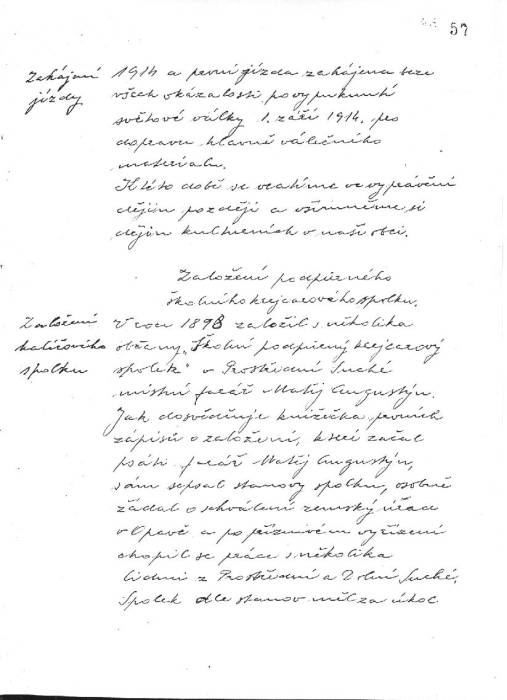 57
Zahájení
jízdy
1914 a první jízda zahájena beze
všech okázalostí po vypuknutí
světové války 1. září 1914, pro
dopravu hlavně válečného
materialu.
K této době se vrátíme ve vyprávění
dějin později a všimněme si
dějin kulturních v naší obci.
Založení podpůrného
školního krejcarového spolku.
Založení
haléřového
spolku
V roce 1898 založil s několika
občany „Školní podpůrný krejcarový
spolek" v Prostřední Suché
místní farář Matěj Augustýn.
Jak dosvědčuje knížečka prvních
zápisů o založení, kterí začal
psáti farář Matěj Augustýn,
sám sepsal stanovy spolku, osobně
žádal o schválení zemský úřad
v Opavě a po příznivém vyřízení
chopil se práce s několika
lidmi z Prostřední a Dolní Suché.
Spolek dle stanov měl za úkol